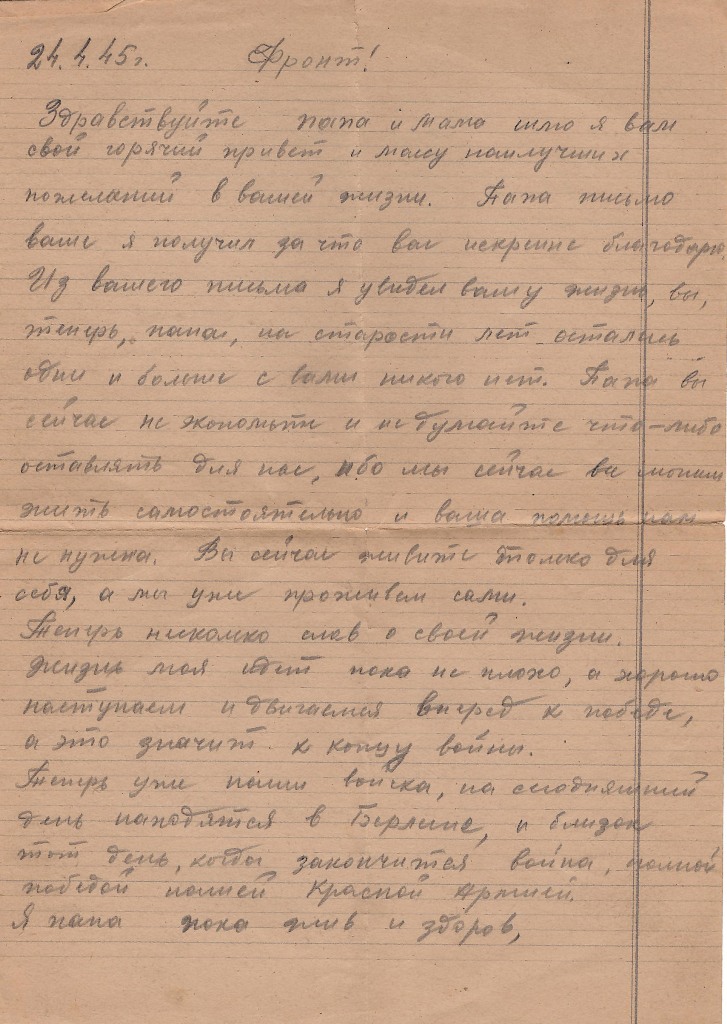 24.4.45г. Фронт!
Здравствуйте папа и мама шлю я вам
свой горячий привет и массу наилучших
пожеланий в вашей жизни. Папа письмо
ваше я получил за что вас искренне благодарю.
Из вашего письма я увидел вашу жизнь, вы,
теперь, папа, на старости лет остались
одни и больше с вами никого нет. Папа вы
сейчас не экономьте и не думайте что-либо
оставлять для нас, ибо мы сейчас можем
жить самостоятельно и ваша помощь нам
не нужна. Вы сейчас живите только для
себя, а мы уже проживем сами.
Теперь несколко слов о своей жизни.
Жизнь моя идет пока не плохо, а хорошо
наступаем и двигаемся вперед к победе,
а это значит к концу войны.
Теперь уже наши войска, на сегодняшний
день находятся в Берлине, и близок
тот день, когда закончится война, полной
победой нашей Красной Армией.
Я папа пока жив и здоров,